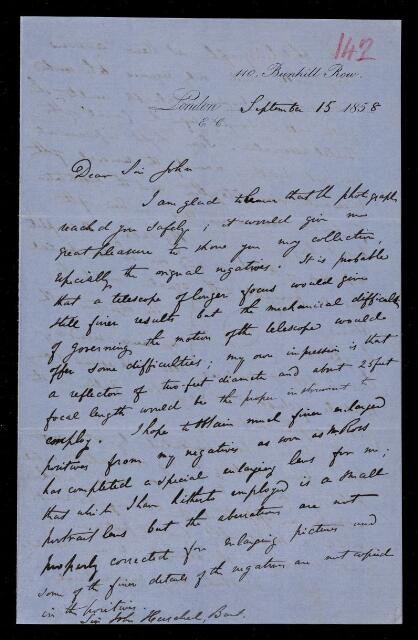 142
110, Bunhill Row.
London September 15 1858
E. C.
Dear Sir John
I am glad to learn that the photographs
reached you safely; it would give me
great pleasure to show you my collection,
especially the original negatives. It is probable
that a telescope of longer focus would give
still finer results but the mechanical difficulty
of governing the motion of the telescope would
offer some difficulties; my own impression is that
a reflector of two feet diameter and about 25 feet
focal length would be the proper instrument to
employ. I hope to obtain much finer enlarged
positives from my negatives as soon as Mr Ross
has completed a special enlarging lens for me;
that which I have hitherto employed is a small
portrait lens but the aberrations are not
properly corrected for enlarging pictures and
some of the finer details of the negatives are not copied
in the positives.
Sir John Herschel, Bart.